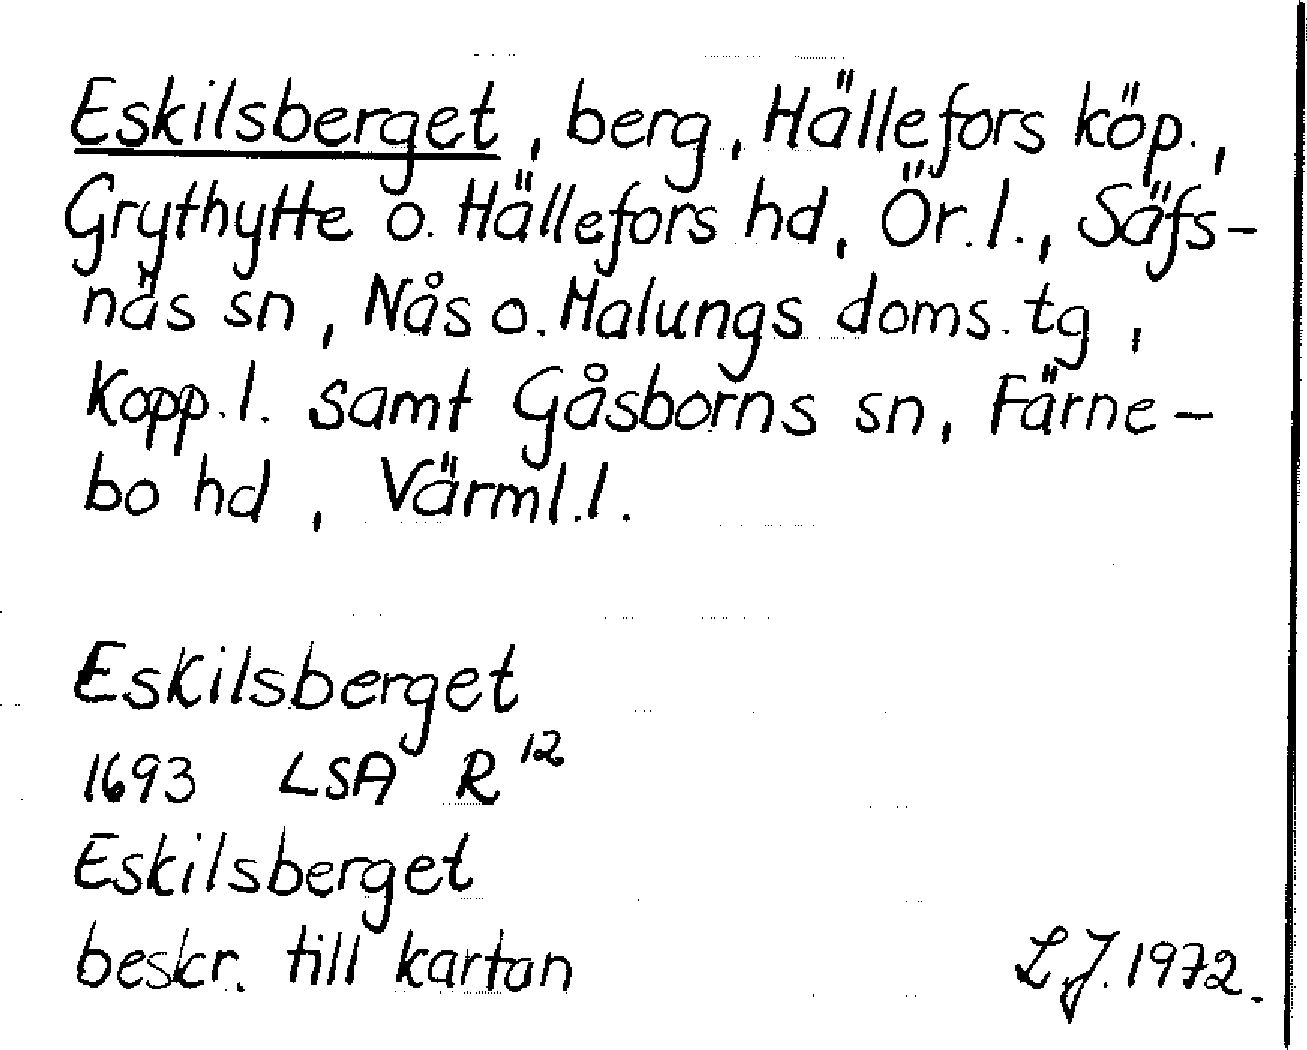 Eskilsberget, berg, Hällefors köp.,
Grythytte o. Hällefors hd, Ör. l., Säfs-
näs sn, Nås o. Malungs doms. tg,
Kopp. l. samt Gåsborns sn, Färne-
bo hd, Värml. l.
Eskilsberget
1693 LSA R 12
Eskilsberget
beskr. till kartan
L.J. 1972.